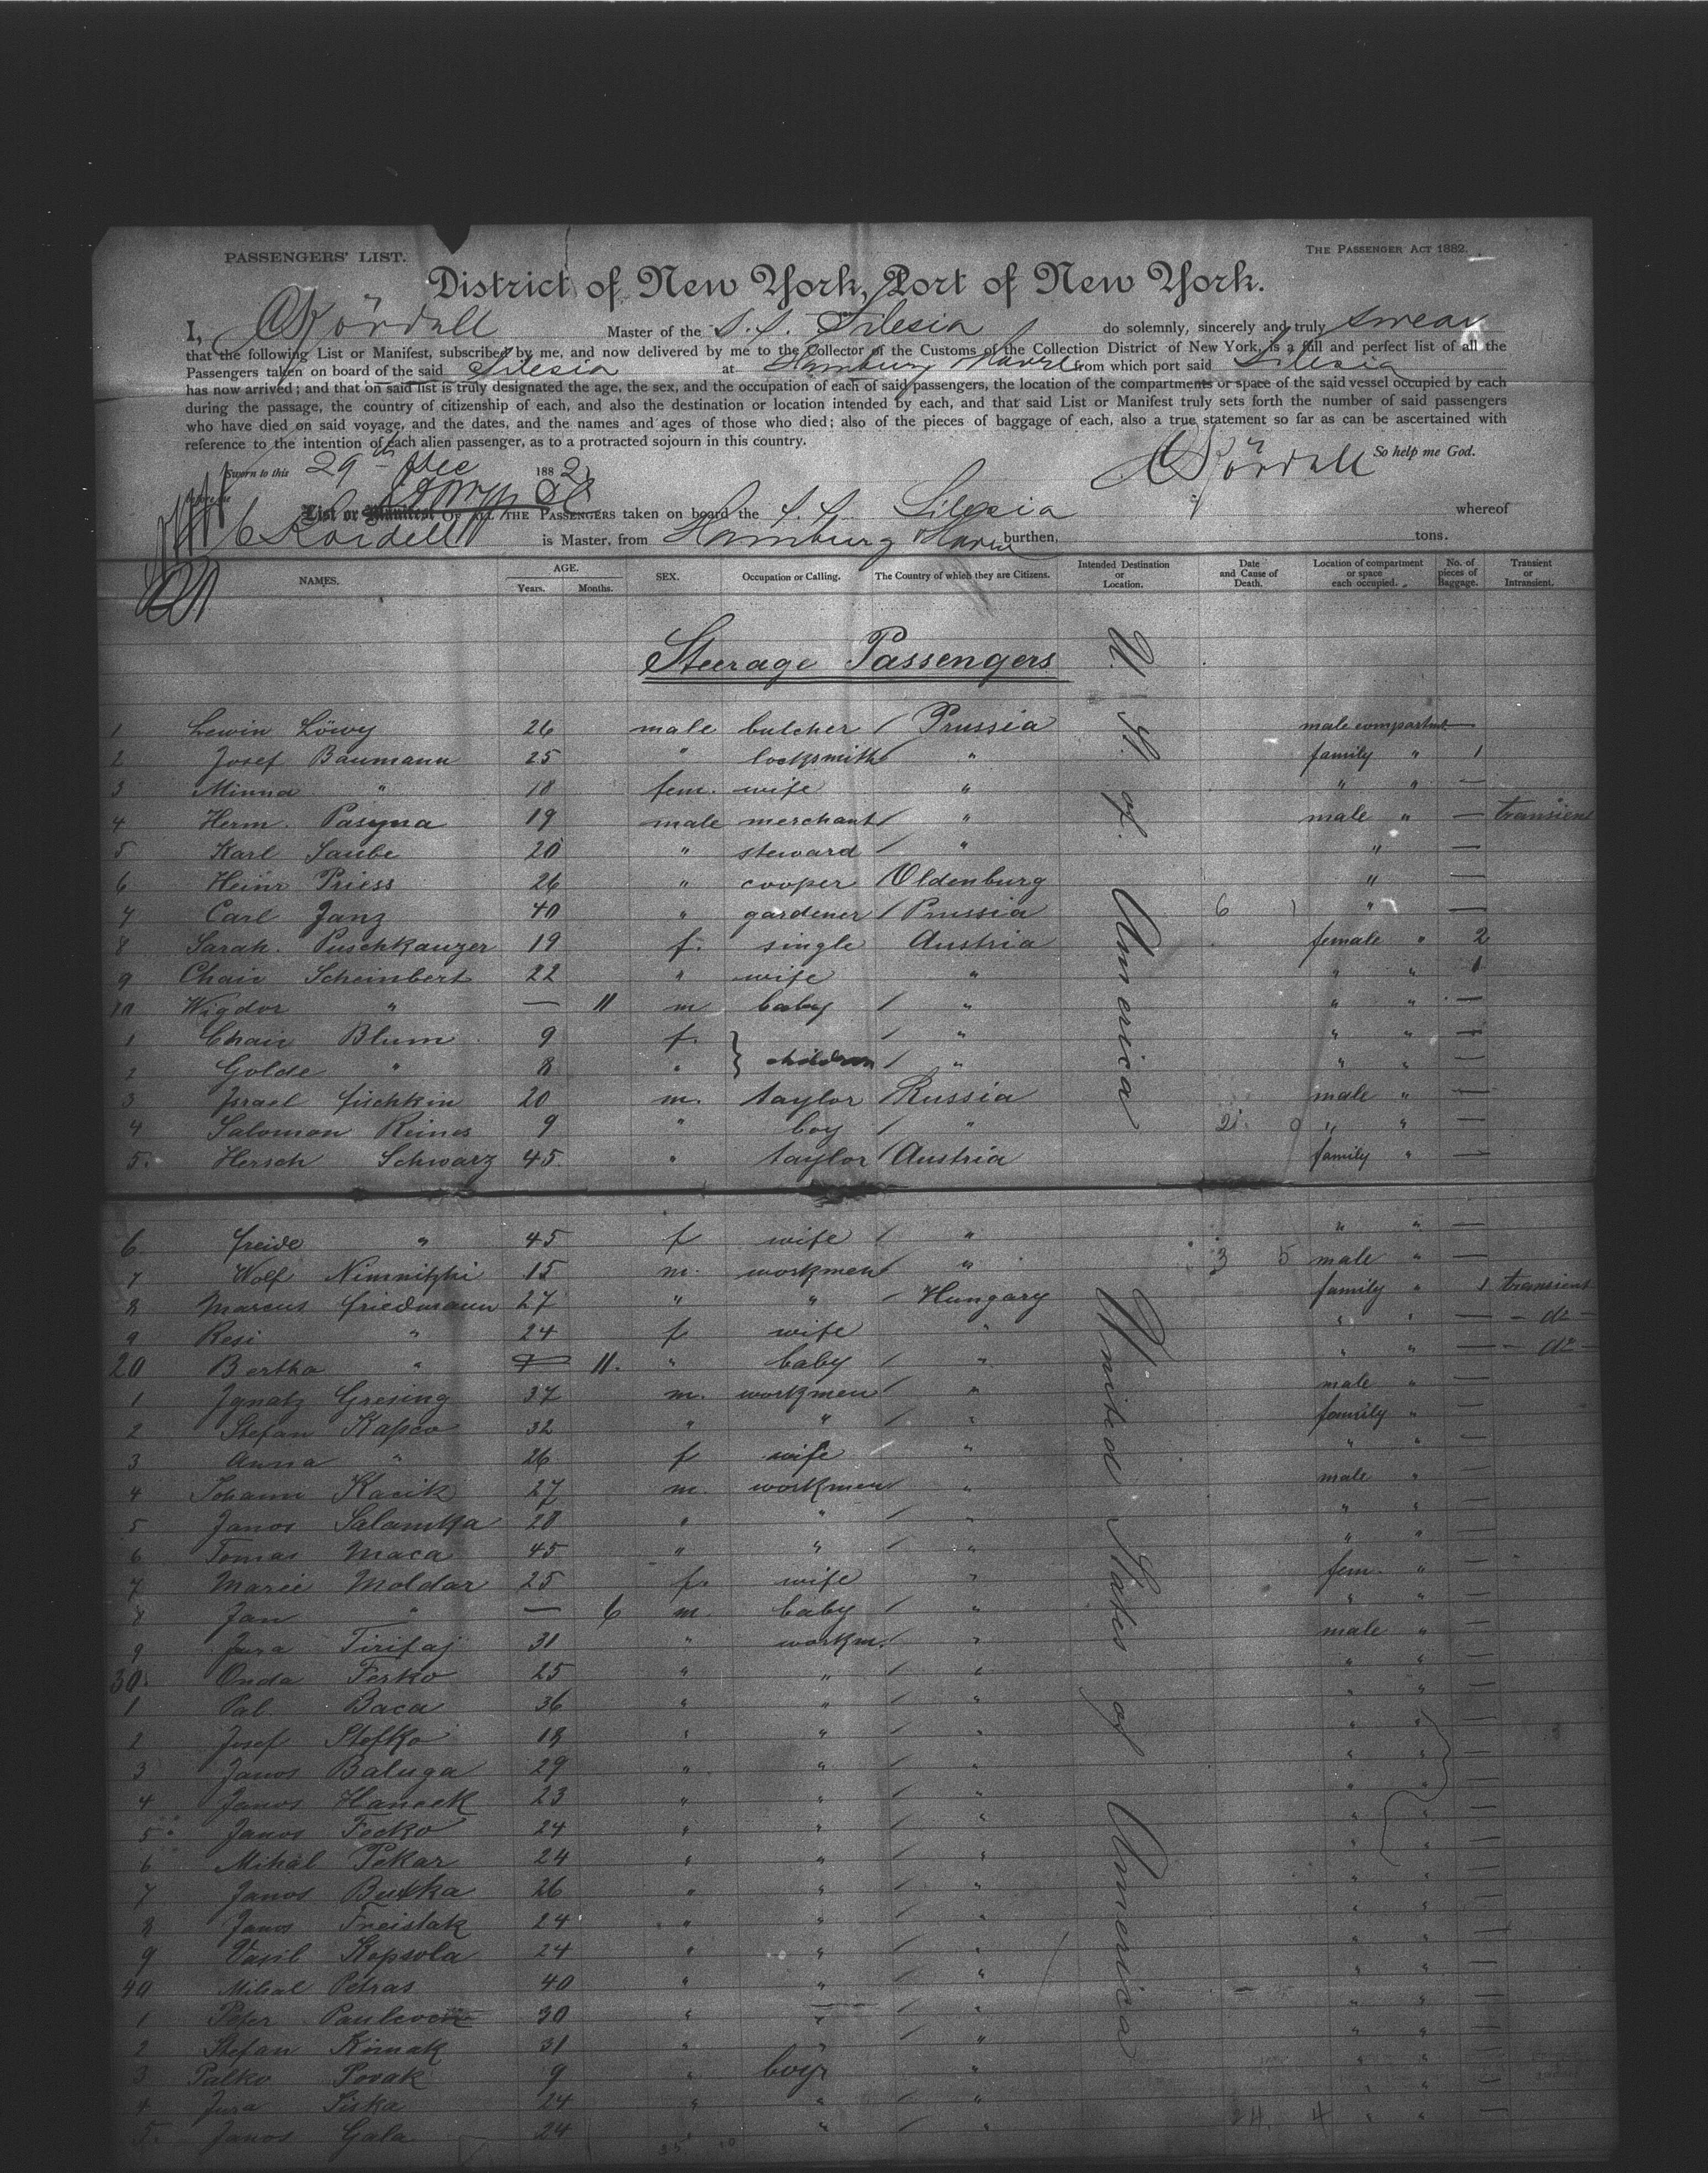 PASSENGERS' LIST.
THE PASSENGER ACT 1882.
District of New York, Port of New York.
I, Kördell Master of the S. S. Silesia do solemnly, sincerely and truly swear
that the following List or Manifest, subscribed by me, and now delivered by me to the Collector of the Customs of the Collection District of New York, is a full and perfect list of all the
Passengers taken on board of the said Silesia at Hamburg Havre from which port said Silesia
has now arrived; and that on said list is truly designated the age, the sex, and the occupation of each of said passengers, the location of the compartments or space of the said vessel occupied by each
during the passage, the country of citizenship of each, and also the destination or location intended by each, and that said List or Manifest truly sets forth the number of said passengers
who have died on said voyage, and the dates, and the names and ages of those who died; also of the pieces of baggage of each, also a true statement so far as can be ascertained with
reference to the intention of each alien passenger, as to a protracted sojourn in this country.
So help me God.
Sworn to this 29th Dec 1882
before me
Kördell
List or Manifest OF ALL THE PASSENGERS taken on board the S. S. Silesia whereof
C Kördell is Master, from Hamburg Havre burthen, tons.
NAMES. AGE. Years. Months. SEX. Occupation or Calling. The Country of which they are Citizens. Intended Destination or Location. Date and Cause of Death. Location of compartment or space each occupied. No. of pieces of Baggage. Transient or Intransient.
Steerage Passengers
U. S. of America
1 Lewin Löwy 26 male butcher / Prussia male compartmt. —
2 Josef Baumann 25 " locksmith / " family " 1
3 Minna " 18 fem. wife " " " —
4 Herm. Pasyna 19 male merchant / " male " — transient
5 Karl Saube 20 " steward / " " —
6 Heinr Priess 26 " cooper / Oldenburg " —
7 Carl Janz 40 " gardener / Prussia 6 1 " —
8 Sarah. Puschkauzer 19 f. single Austria female " 2
9 Chaie Scheinbert 22 " wife " " " 1
10 Wigdor " — 11 m baby / " " " —
1 Chaie Blum 9 f. / " " " —
2 Golde " 8 " } children / " " " —
3 Israel Fischkin 20 m. taylor / Russia male " —
4 Salomon Reines 9 " boy / " 2. 9 " " —
5. Hersch Schwarz 45 " taylor / Austria family " —
6 Freide " 45 f wife / " " " —
7 Wolf Nimnitzki 15 m. workmen / " 3 5 male " —
8 Marcus Friedmann 27 " " / Hungary family " 1 transient
9 Resi " 24 f wife " " " — do
20 Bertha " 11. " baby / " " " — do
1 Ignatz Gresing 37 m. workmen / " male " —
2 Stefan Kapco 32 " " / " family " —
3 Anna " 26 f wife " " " —
4 Johann Kacik 27 m. workmen " male " —
5 Janos Salamka 28 " " / " " " —
6 Tomas Maca 45 " " / " " " —
7 Marie Moldar 25 f. wife " fem. " —
8 Jan " — 6 m. baby / " " " —
9 Jura Tirifaj 31 " workm. / " male " —
30 Onda Ferko 25 " " / " " " —
1 Pal. Baca 36 " " / " " " —
2 Josef Stefko 18 " " " " " —
3 Janos Baluga 29 " " / " " " —
4 Janos Hancek 23 " " / " " " —
5 Janos Fecko 24 " " / " " " —
6 Mihal Pekar 24 " " / " " " —
7 Janos Butka 26 " " / " " " —
8 Janos Freislak 24 " " / " " " —
9 Vasil Kopsola 24 " " / " " " —
40 Mihal Petras 40 " " / " " " —
1 Peter 30 " " / " " " —
2 Stefan Kimak 31 " " / " " " —
3 Palko Povak 9 " boy " " " —
4 Jura Siska 24 " " / " " " —
5. Janos Gala 24 " / " 24. 4 " " —
United States of America